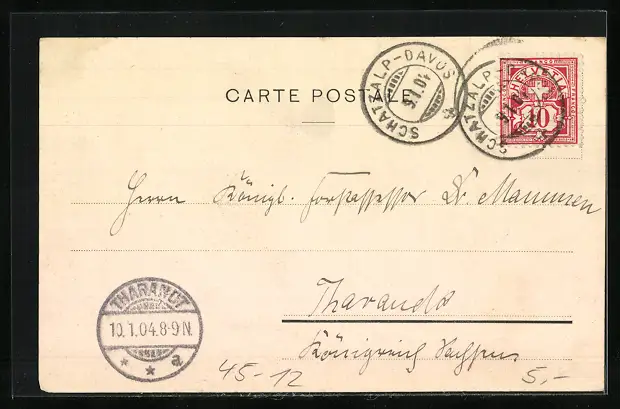 SCHATZALP-DAVOS
9.I.04
SCHATZALP-
HELVETIA
10
CARTE POSTALE
Herrn Königl. Forstassessor Dr. Mammen
Tharandt
Königreich Sachsen
THARANDT
10.1.04.8-9N.
* * a
45-12
5,-